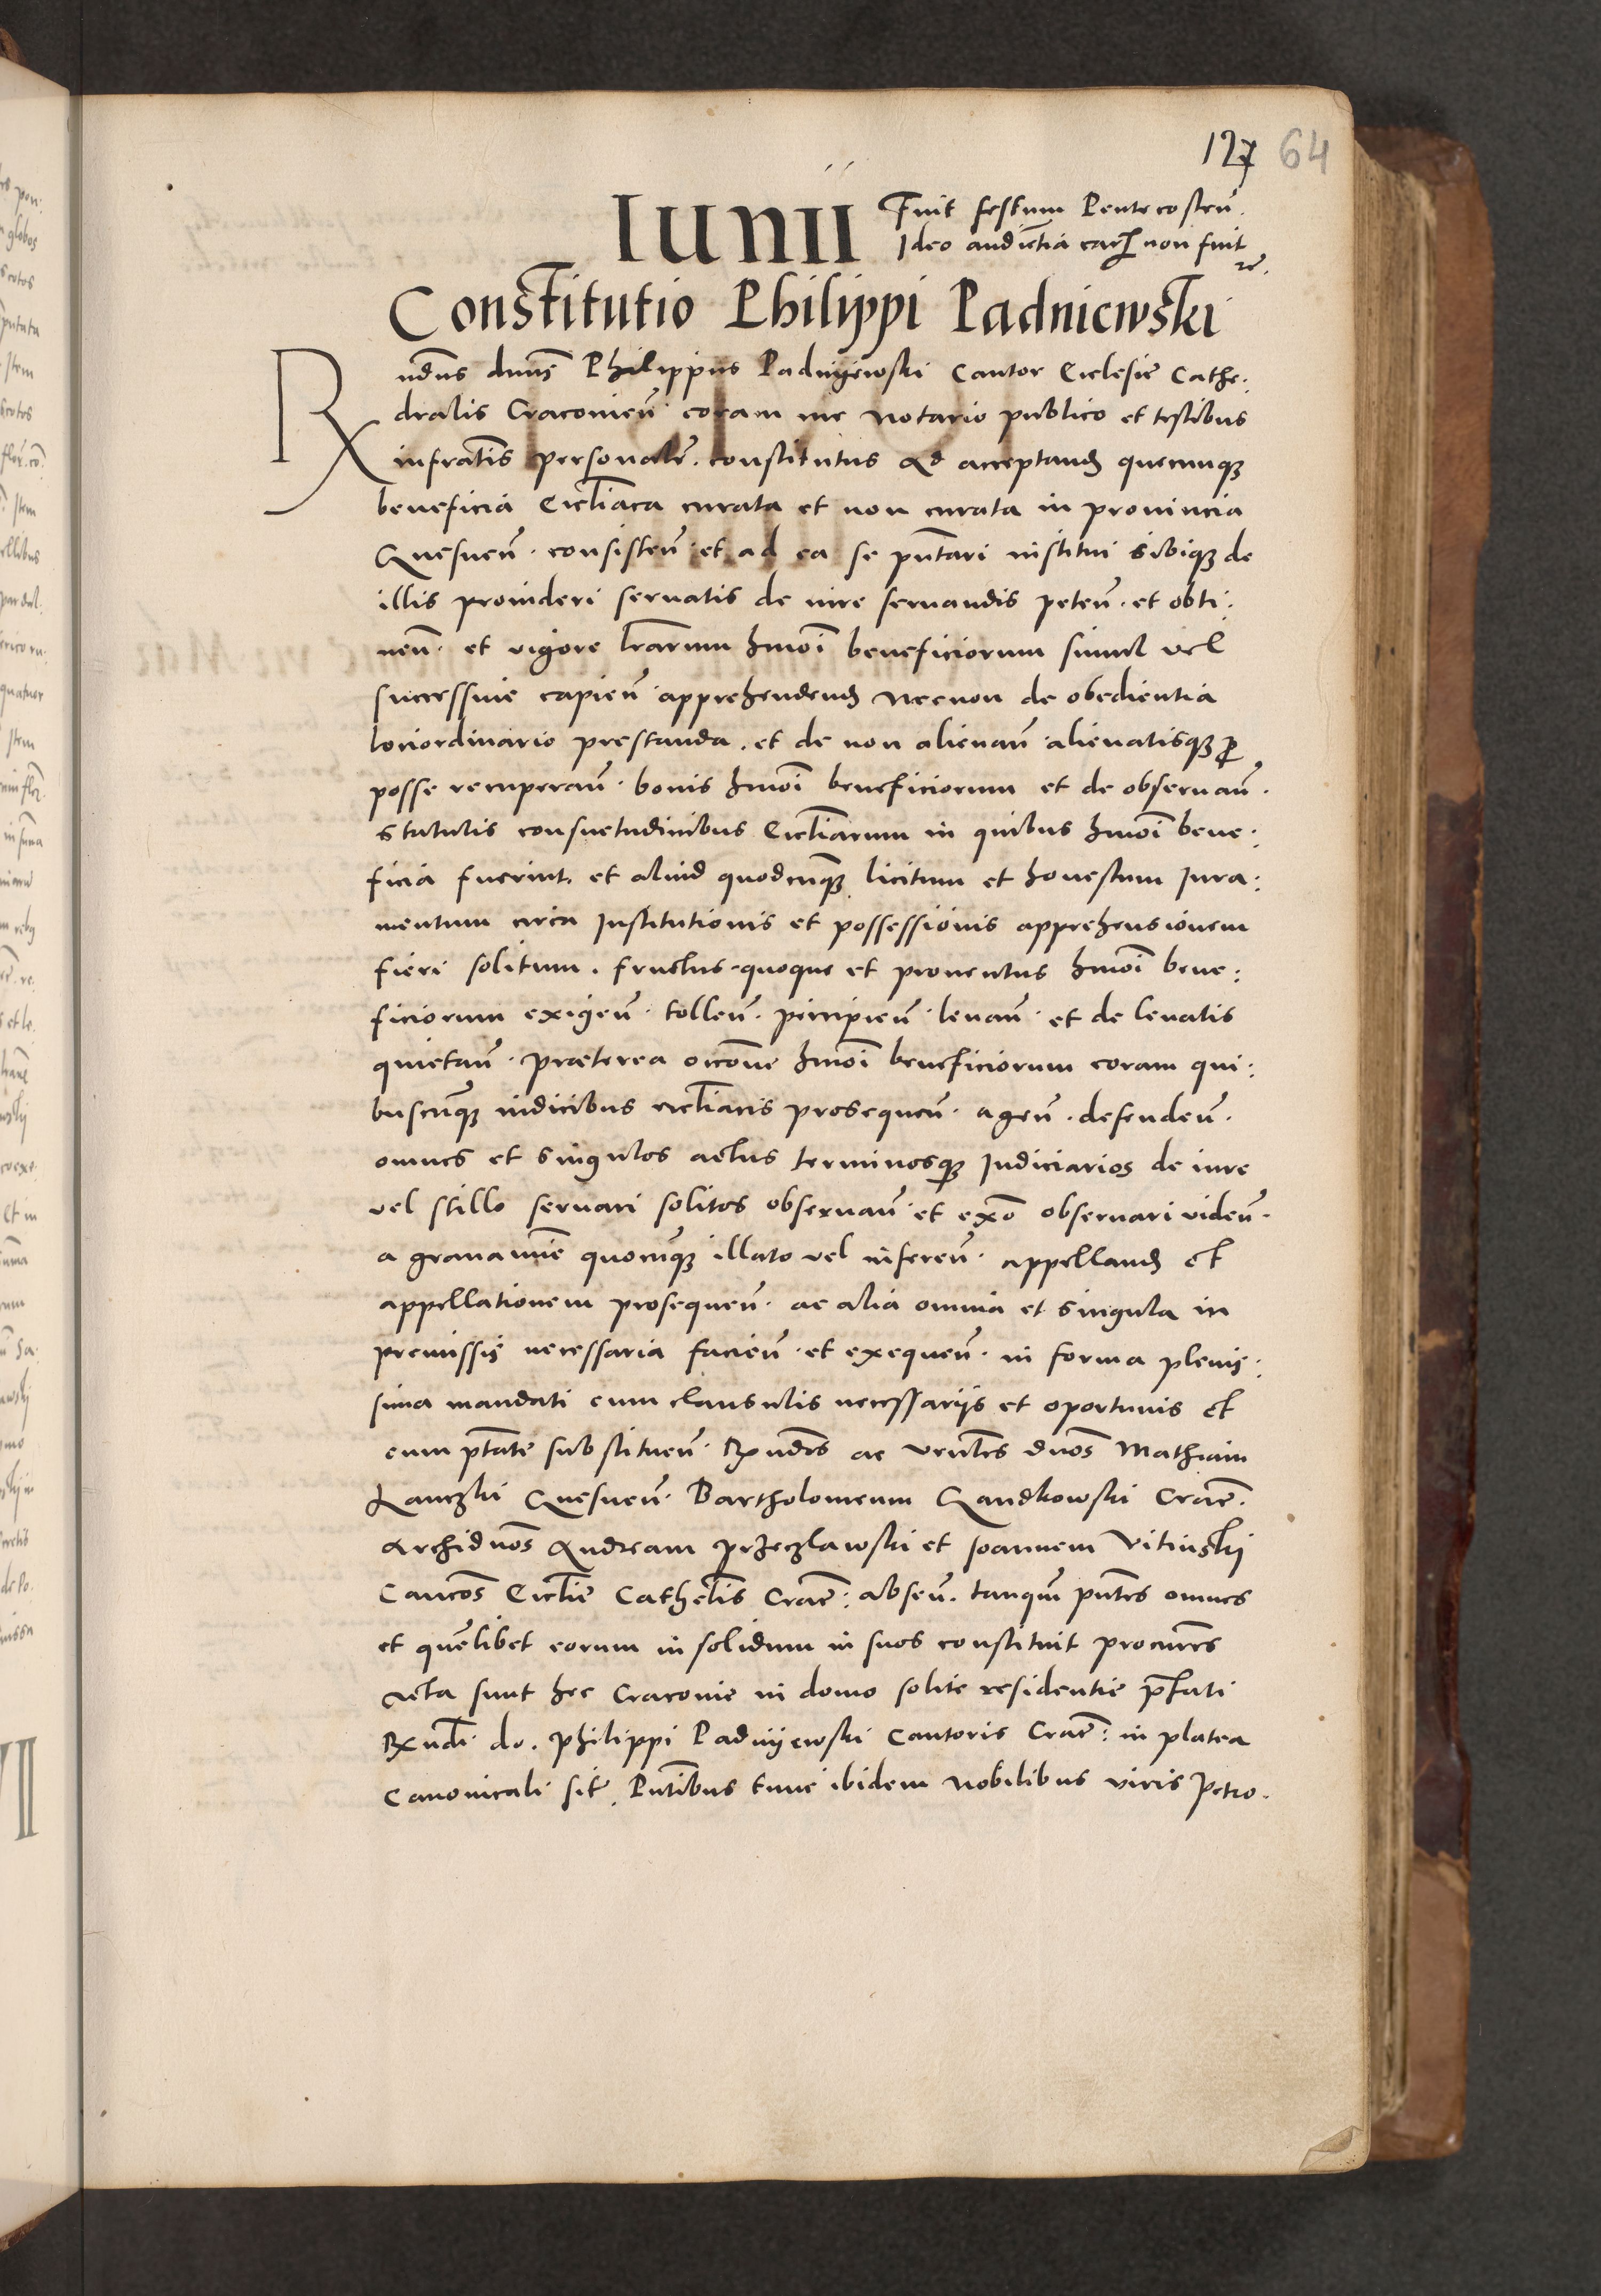 127 64
IUNII
Fuit festum Pentecosteñ.
Ideo audiẽtia ear non fuit
rẽ.
Constitutio Philippi Padniewski
Rx
ndus dnus Philippus Padnijewski Cantor Ecclesiẽ Cathe:
dralis Cracovieñ coram me Notario publico et testibus
infratis personalr. constitutus Ad acceptand quecunqꝫ
beneficia Ecctiaca curata et non curata in provincia
Gnesneñ. consisteñ. et ad ea se pntari institui sibiqꝫ de
illis provideri servatis de iure servandis peteñ. et obti:
neñ. et vigore lrarum hmoi beneficiorum simul vel
successive capieñ apprehendend Necnon de obedientia
lociordinario prestanda. et de non alienañ alienatisqꝫ ꝓ
posse recuperañ. bonis hmoi beneficiorum et de observañ.
statutis consuetudinibus Ecctiarum in quibus hmoi bene:
ficia fuerint. et aliud quodcunqꝫ licitum et honestum Iura:
mentum circa Institutionis et possessionis apprehensionem
fieri solitum. fructus quoque et proventus hmoi bene:
ficiorum exigeñ. tolleñ. percipieñ levañ et de levatis
quietañ. præterea oicone hmoi beneficiorum coram qui:
buscunqꝫ iudicibus ecctiacis prosequeñ. ageñ. defendeñ.
omnes et singulos actus terminosqꝫ Iudiciarios de iure
vel stillo servari solitos observañ et exõ observari videñ.
a gravamie quocunqꝫ illato vel infereñ. appelland et
appellationem prosequeñ. ac alia omnia et singula in
premissis necessaria facieñ et exequeñ. in forma plenis:
sima mandati cum clausulis necessarijs et oportunis et
cum ptate substitueñ. Rxndos ac Venles dnos Mathiam
Lanczki Gnesneñ. Bartholomeum Gandkowski Crac̃.
Archidnos Andream przeczlawski et Ioannem Vitinskij
Canõcos Ecctie Cathetis Crac̃: absen. tanqm pntes omnes
et quemlibet eorum in solidum in suos constituit procures
Acta sunt hec Cracovie in domo solite residentie pfati
Rxndi do. Philippi Padnijewski Cantoris Crac̃: in platea
Canonicali sit̃. Pntibus tunc ibidem Nobilibus viris Petro.